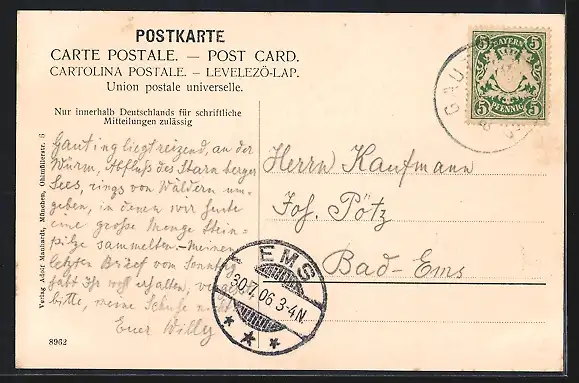 POSTKARTE
CARTE POSTALE. — POST CARD.
CARTOLINA POSTALE. — LEVELEZŐ-LAP.
Union postale universelle.
Nur innerhalb Deutschlands für schriftliche
Mitteilungen zulässig
Gauting liegt reizend, an der
Würm, Abfluß des Starnberger
Sees, rings von Wäldern um-
geben, in denen wir heute
eine große Menge Stein-
pilze sammelten. Meinen
letzten Brief vom Sonntag
habt Ihr wohl erhalten,
bitte, meine Schuhe
Euer Willy
Herrn Kaufmann
Jos. Pötz
Bad-Ems
BAYERN
5 5
5 5
PFENNIG
GAU
EMS
30.7.06 3-4N.
Verlag Adolf Manhardt, München, Ohlmüllerstr. 6
8962